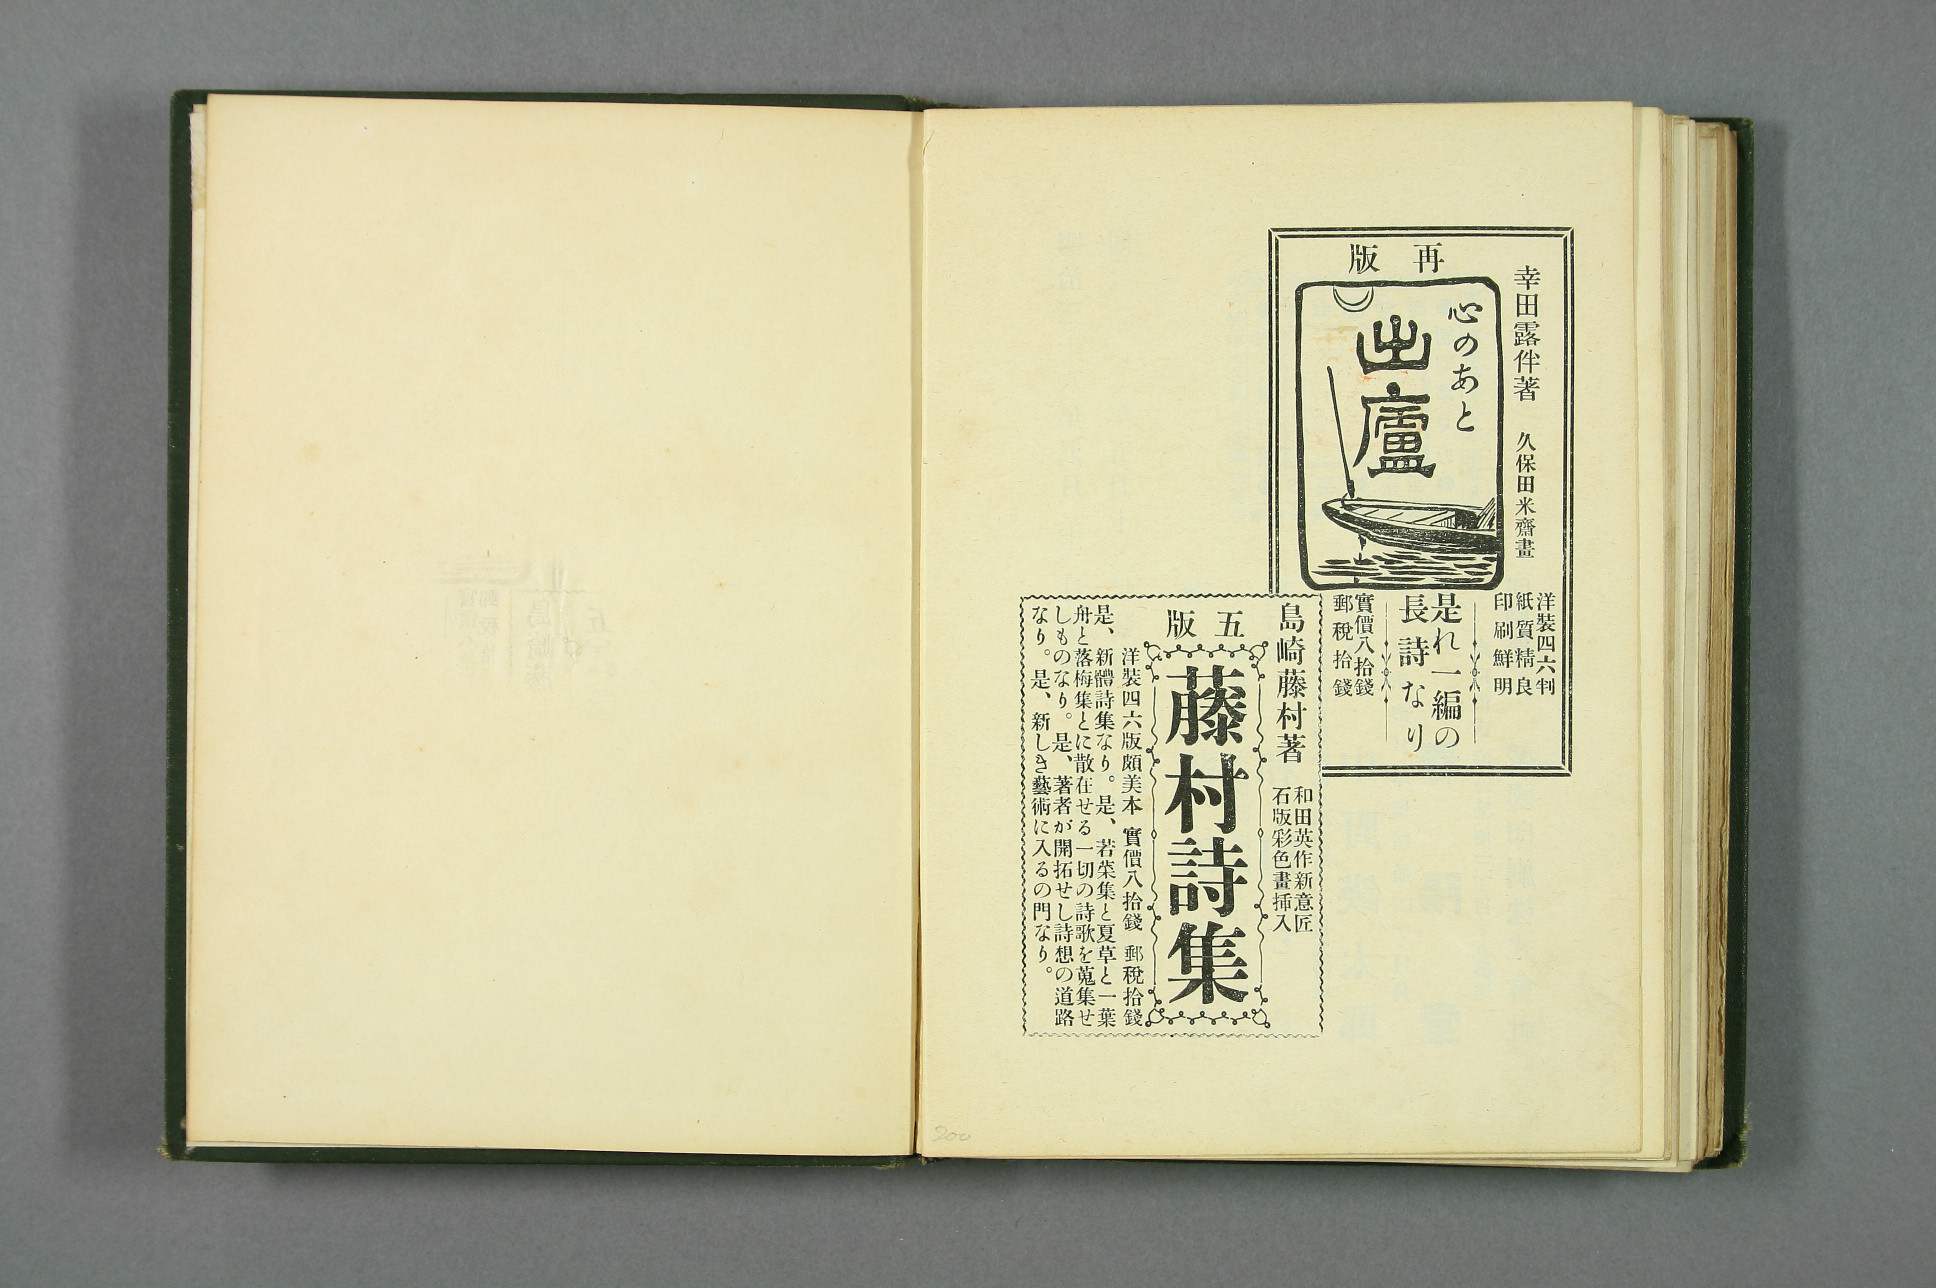 再版
幸田露伴著　久保田米齋畫
心のあと
出廬
洋裝四六判
紙質精良
印刷鮮明
是れ一編の
長詩なり
實價八拾錢
郵稅拾錢
島崎藤村著
和田英作新意匠
石版彩色畫挿入
五版
藤村詩集
洋裝四六版頗美本　實價八拾錢　郵稅拾錢
是、新體詩集なり。是、若菜集と夏草と一葉
舟と落梅集とに散在せる一切の詩歌を蒐集せ
しものなり。是、著者が開拓せし詩想の道路
なり。是、新しき藝術に入るの門なり。
200